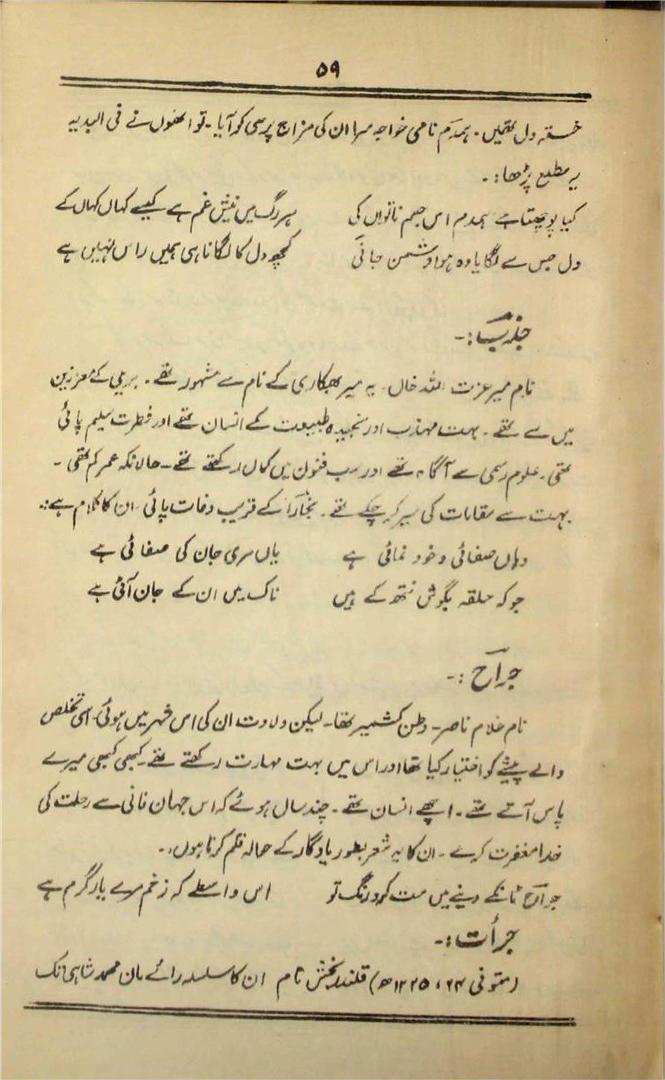 ۵۹
خستہ دل تھیں۔ ہمدم نامی خواجہ سرا ان کی مزاج پرسی کو آیا۔ تو انھوں نے فی البدیہ
یہ مطلع پڑھا:۔
کیا پوچھتا ہے ہمدم اس جسم ناتواں کی ہر رگ میں نیش غم ہے کہیے کہاں کہاں کے
دل جس سے لگایا وہ ہوا دشمن جانی کچھ دل کا لگانا ہی ہمیں راس نہیں ہے
جذب:۔
نام میر عزت اللہ خاں۔ یہ میر بھکاری کے نام سے مشہور تھے۔ بریلی کے معززین
میں سے تھے۔ بہت مہذب اور سنجیدہ طبیعت کے انسان تھے اور فطرت سلیم پائی
تھی۔ علوم رسمی سے آگاہ تھے اور سب فنون میں کمال رکھتے تھے۔ حالانکہ عمر کم تھی۔
بہت سے مقامات کی سیر کر چکے تھے۔ بخارا کے قریب وفات پائی۔ ان کا کلام ہے:۔
وہاں صفائی و خود نمائی ہے یاں مری جان کی صفائی ہے
جو کہ حلقہ بگوش نتھ کے ہیں ناک میں ان کے جان آئی ہے
جراح:۔
نام غلام ناصر۔ وطن کشمیر تھا۔ لیکن ولادت ان کی اس شہر میں ہوئی۔ اسی تخلص
والے پیشے کو اختیار کیا تھا اور اس میں بہت مہارت رکھتے تھے۔ کبھی کبھی میرے
پاس آتے تھے۔ اچھے انسان تھے۔ چند سال ہوئے کہ اس جہان فانی سے رحلت کی
خدا مغفرت کرے۔ ان کا یہ شعر بطور یادگار کے حوالہ قلم کرتا ہوں۔
جراح ٹانکے دینے میں مت کر درنگ تو اس واسطے کہ زخم مرے یار گرم ہے
جرأت:۔
(متوفی ۲۴، ۱۲۲۵ھ) قلندر بخش نام ان کا سلسلہ رائے مان محمد شاہی تک